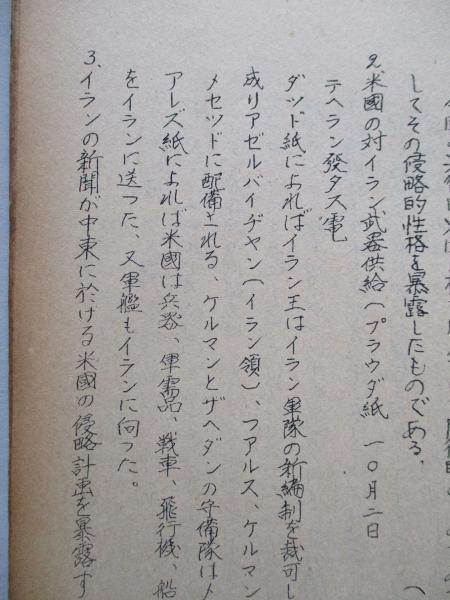 してその侵略的性格を暴露したものである.
2.米國の対イラン武器供給(プラウダ紙 一〇月二日
テヘラン發タス電
ダッド紙によればイラン王はイラン軍隊の新編制を裁可し
成りアゼルバイヂャン(イラン領)、フアルス、ケルマン
メセツドに配備される、ケルマンとザヘダンの守備隊はメ
アレズ紙によれば米國は兵器、軍需品、戦車、飛行機、船
をイランに送つた、又軍艦もイランに向つた。
3.イランの新聞が中東に於ける米國の侵略計画を暴露す